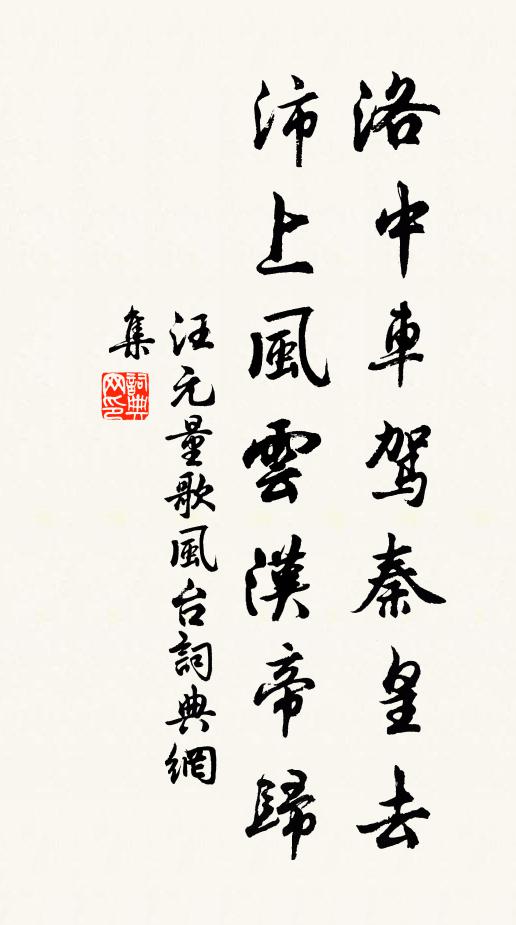 洛中車駕秦皇去
沛上風雲漢帝歸
汪元量歌風台詞典網
集
詞典网印